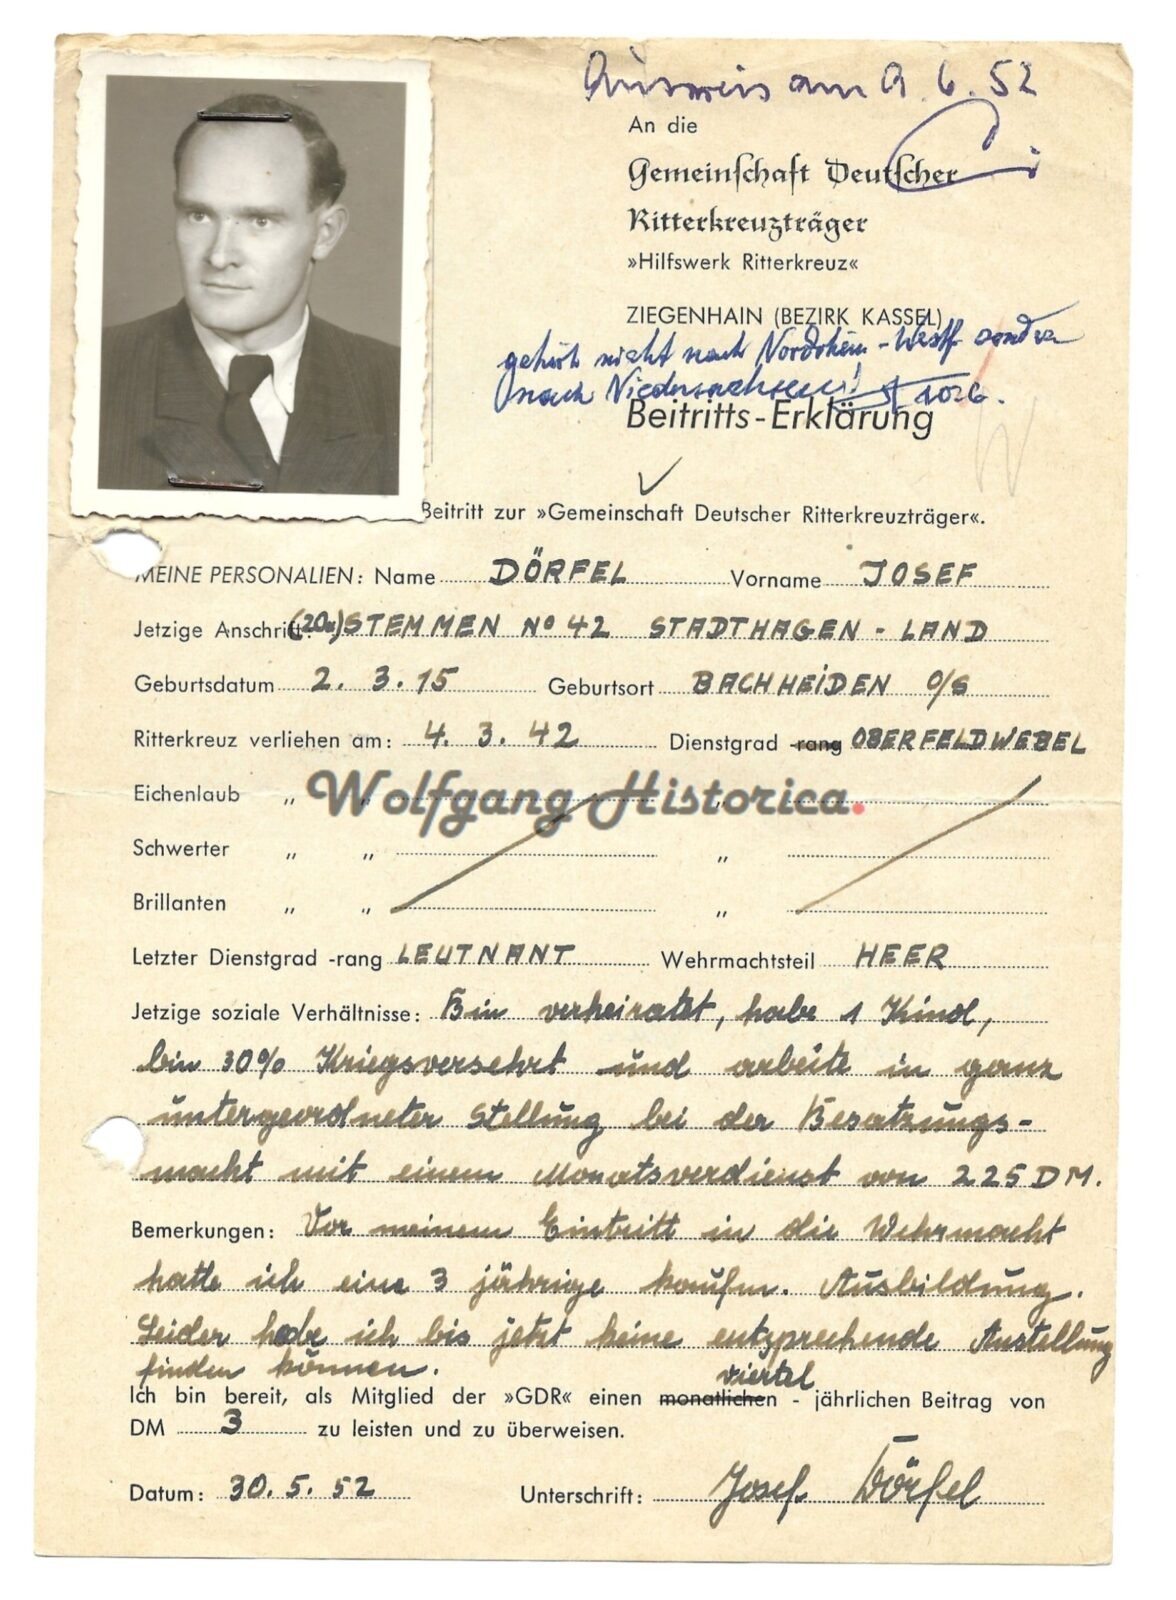 Ausweis am 9.6.52
An die
Gemeinschaft Deutscher
Ritterkreuzträger
»Hilfswerk Ritterkreuz«
ZIEGENHAIN (BEZIRK KASSEL)
gehört nicht nach Nordrhein-Westf. sondern
nach Niedersachsen! 10.6.
Beitritts-Erklärung
Beitritt zur »Gemeinschaft Deutscher Ritterkreuzträger«.
MEINE PERSONALIEN: Name DÖRFEL Vorname JOSEF
Jetzige Anschrift (20a) STEMMEN No 42 STADTHAGEN - LAND
Geburtsdatum 2. 3. 15 Geburtsort BACHHEIDEN O/S
Ritterkreuz verliehen am: 4. 3. 42 Dienstgrad -rang OBERFELDWEBEL
Eichenlaub „ „ „
Wolfgang Historica.
Schwerter „ „ „
Brillanten „ „ „
Letzter Dienstgrad -rang LEUTNANT Wehrmachtsteil HEER
Jetzige soziale Verhältnisse: Bin verheiratet, habe 1 Kind,
bin 30% Kriegsversehrt und arbeite in ganz
untergeordneter Stellung bei der Besatzungs-
macht mit einem Monatsverdienst von 225 DM.
Bemerkungen: Vor meinem Eintritt in die Wehrmacht
hatte ich eine 3 jährige kaufm. Ausbildung.
Leider habe ich bis jetzt keine entsprechende Anstellung
finden können.
viertel
Ich bin bereit, als Mitglied der »GDR« einen monatlichen - jährlichen Beitrag von
DM 3 zu leisten und zu überweisen.
Datum: 30. 5. 52 Unterschrift: Josef Dörfel